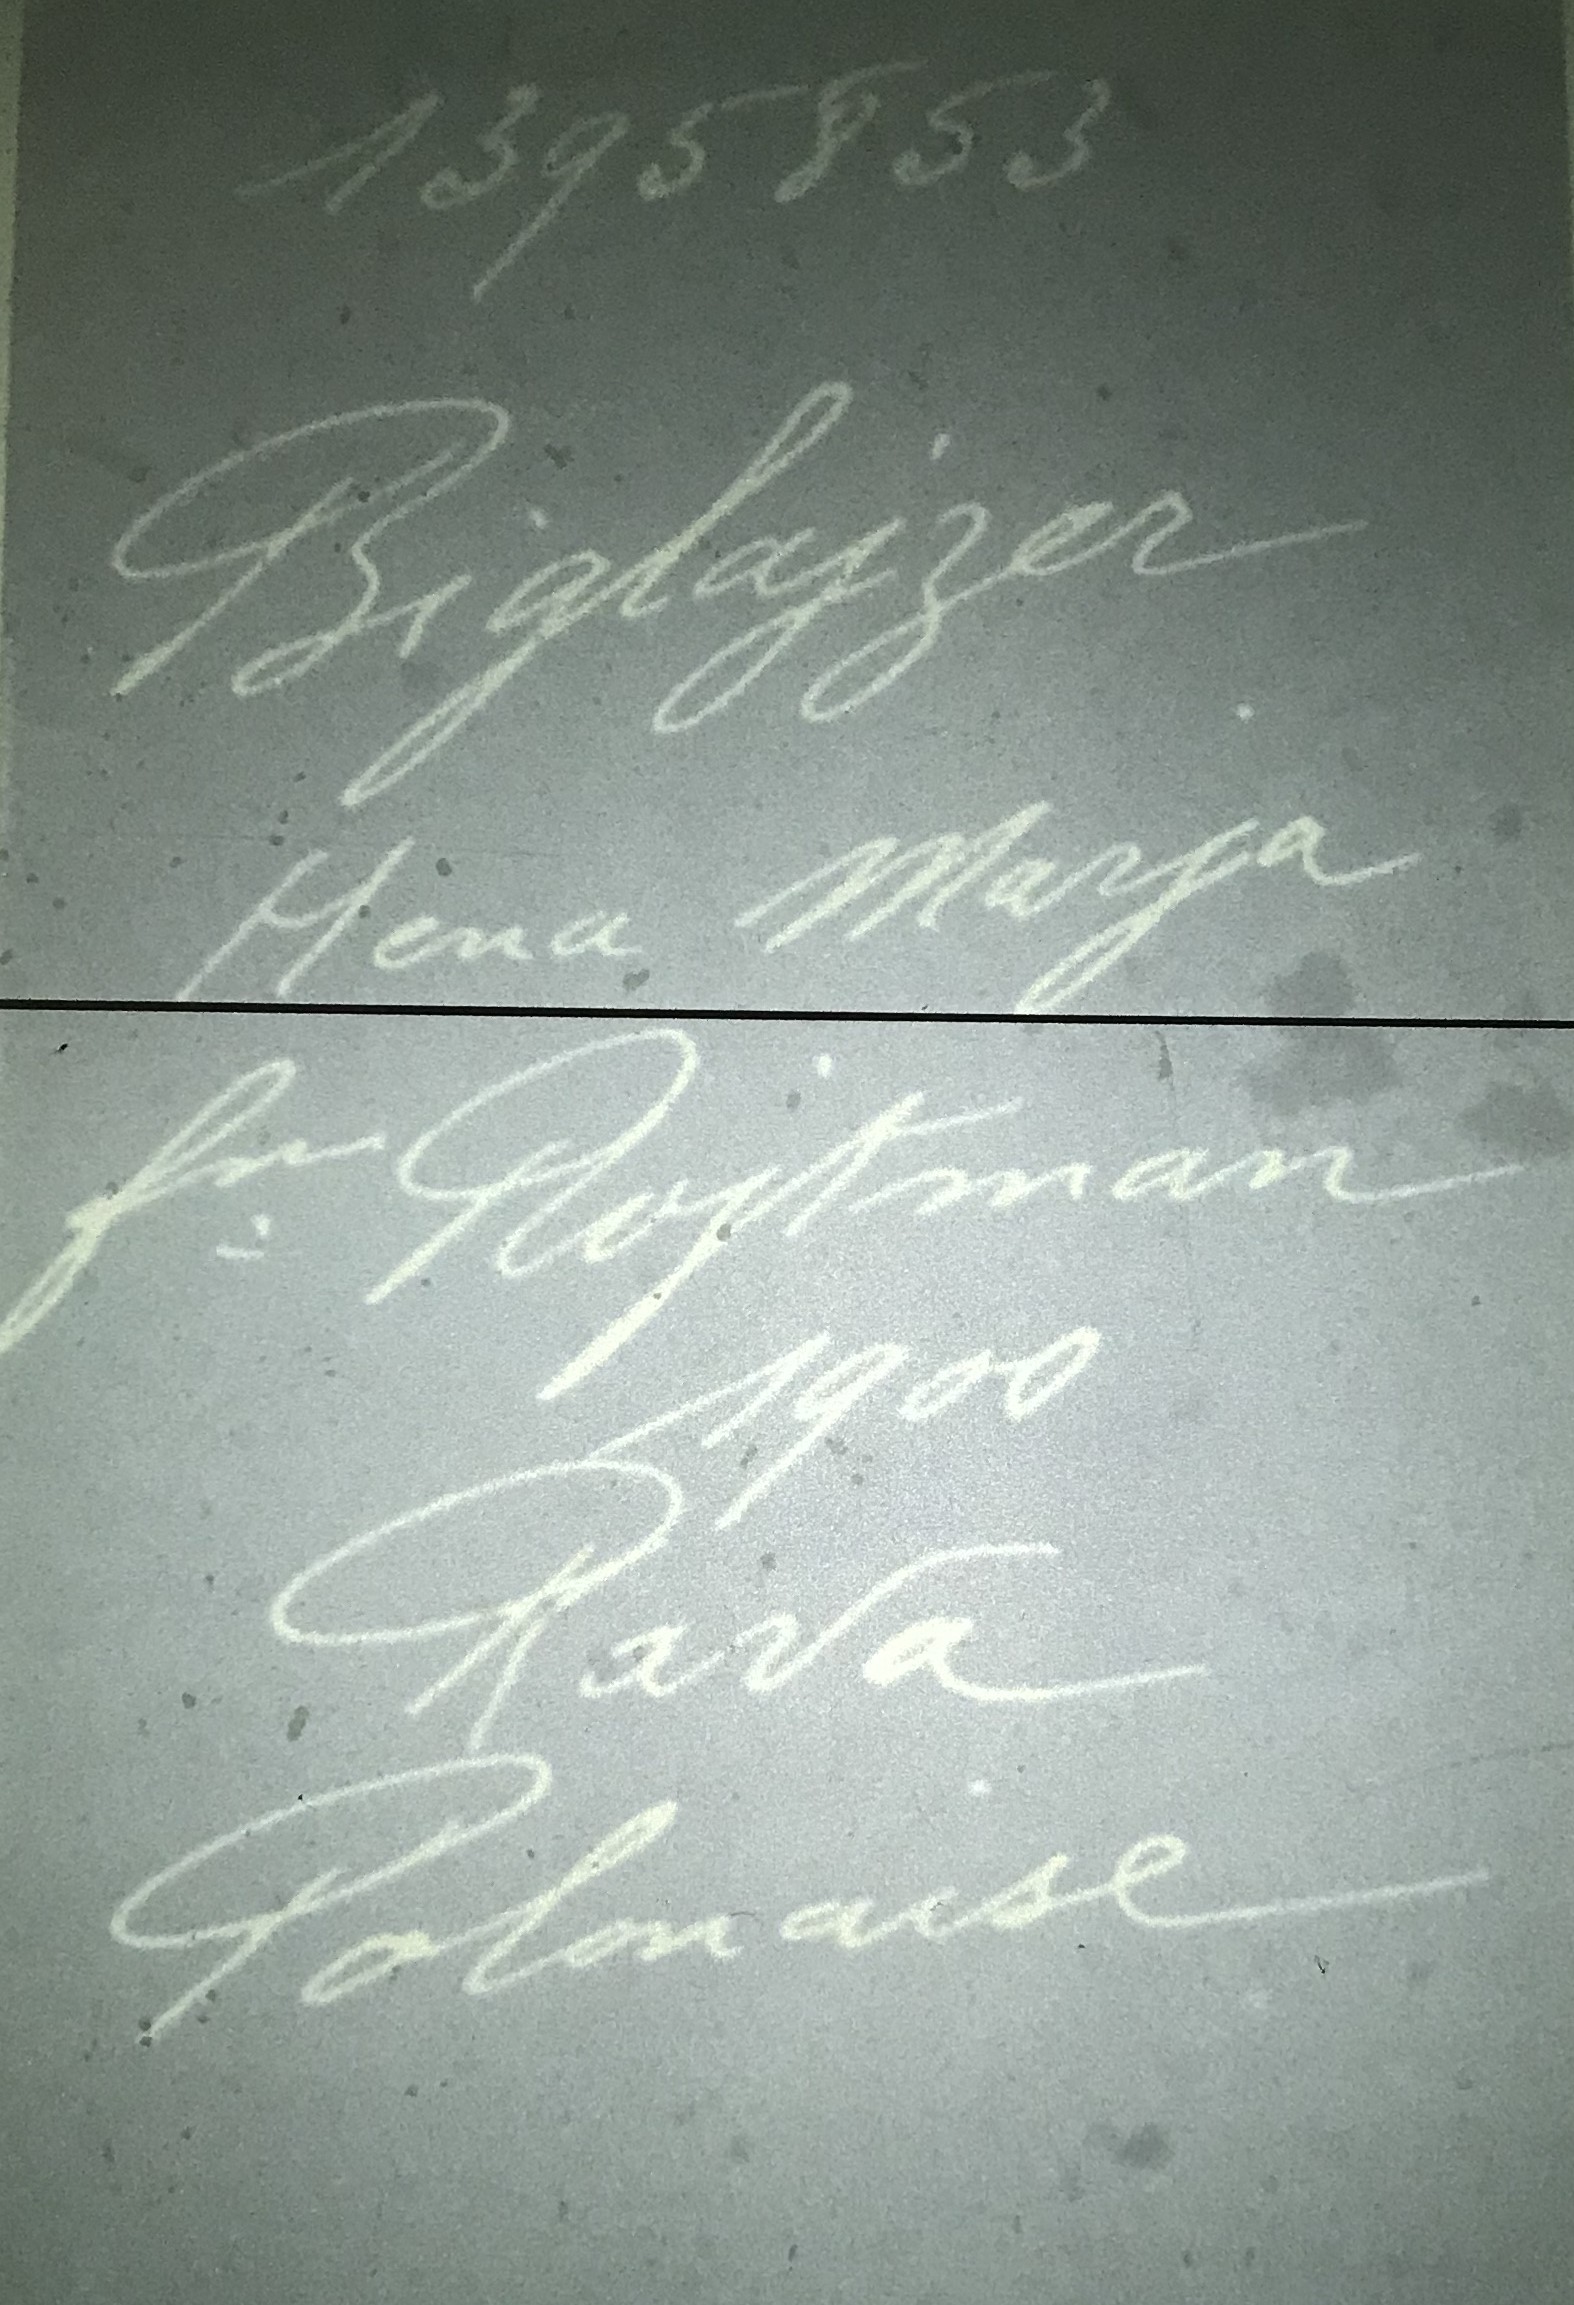 1395853
Biglajzer
Hena Marja
fm Rojtman
1900
Rava
Polonaise